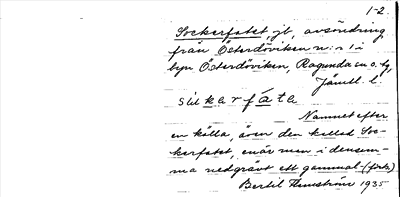 1-2
Sockerfatet, jl, avsöndring
från Österdöviken n:r 1 i
byn Österdöviken, Ragunda sn o. tg,
Jämtl. l.
såkkarfáta
Namnet efter
en källa, även den kallad Soc-
kerfatet, enär man i densam-
ma nedgrävt ett gammal- (forts)
Bertil Flemström 1935